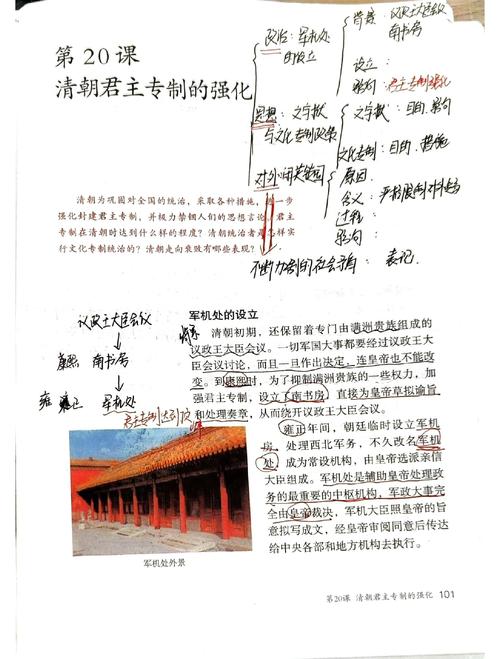 第20课
清朝君主专制的强化
政治：军机处
的设立
背景：议政王大臣会议
南书房
设立：
影响：君主专制强化
思想：文字狱
与文化专制政策
文字狱：目的、影响
文化专制：目的、措施
对外闭关锁国
原因
含义：严格限制对外贸易
过程：
影响：
不断加剧的社会矛盾：表现
清朝为巩固对全国的统治，采取各种措施，进一步
强化封建君主专制，并极力禁锢人们的思想言论。君主
专制在清朝时达到什么样的程度？清朝统治者是怎样实
行文化专制统治的？清朝走向衰败有哪些表现？
军机处的设立
议政王大臣会议
康熙 南书房
雍正 军机处
君主专制达到顶峰
清朝初期，还保留着专门由满洲贵族组成的
议政王大臣会议。一切军国大事都要经过议政王大
臣会议讨论，而且一旦作出决定，连皇帝也不能改
变。到康熙时，为了抑制满洲贵族的一些权力，加
强君主专制，设立了南书房，直接为皇帝草拟谕旨
和处理奏章，从而绕开议政王大臣会议。
雍正年间，朝廷临时设立军机
房，处理西北军务，不久改名军机
处，成为常设机构，由皇帝选派亲信
大臣组成。军机处是辅助皇帝处理政
务的最重要的中枢机构，军政大事完
全由皇帝裁决，军机大臣照皇帝的旨
意拟写成文，经皇帝审阅同意后传达
给中央各部和地方机构去执行。
军机处外景
第20课 清朝君主专制的强化 101